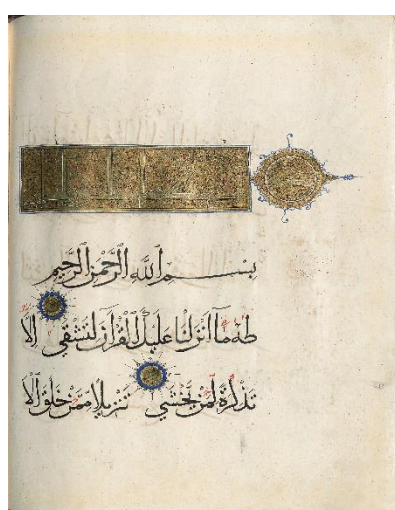 بسم الله الرحمن الرحيم
طه ما أنزلنا عليك القرآن لتشقى إلا
تذكرة لمن يخشى تنزيلا ممن خلق الأ